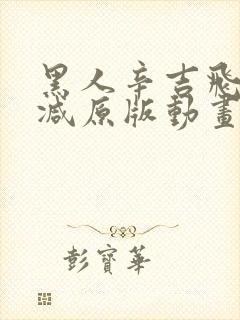 黑人辛吉飛
減原版動畫
彭寶華